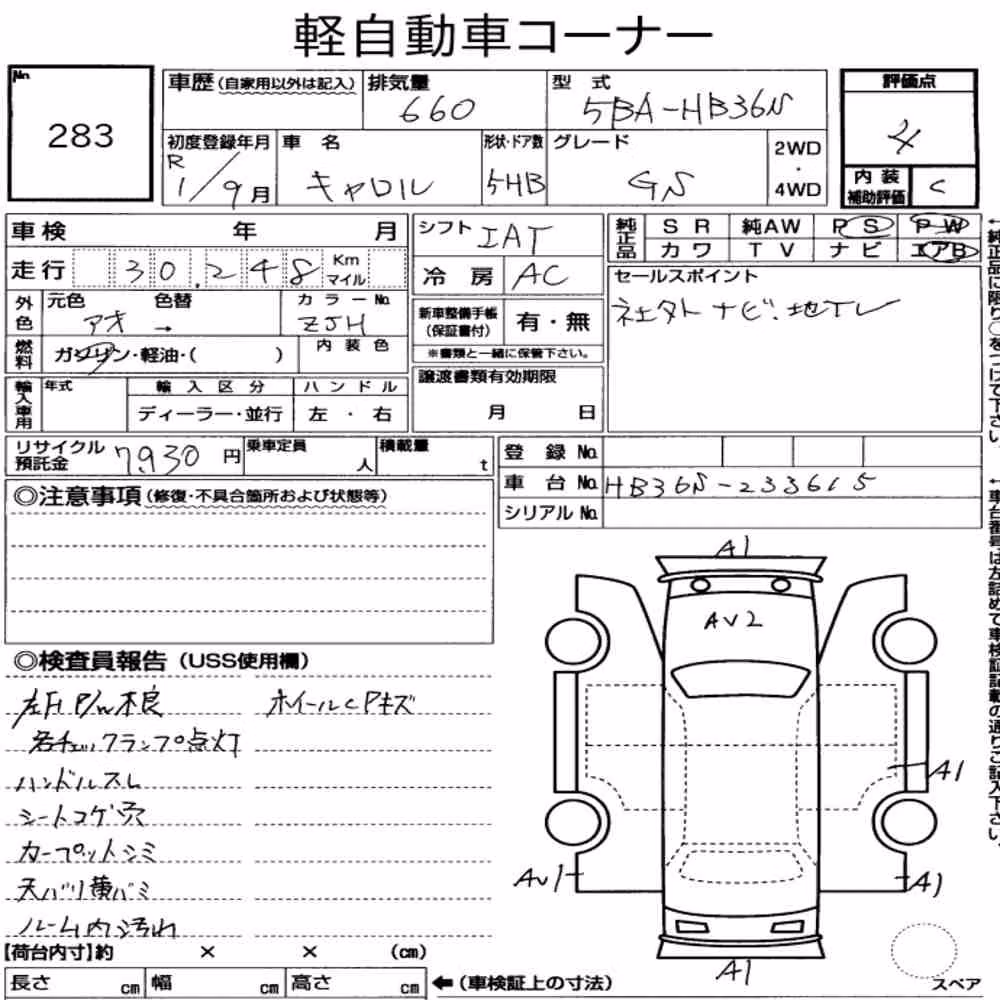 軽自動車コーナー
No. 283
車歴(自家用以外は記入) 排気量 660 型式 5BA-HB36S
評価点 4
内装補助評価 C
初度登録年月 R 1/9月 車名 キャロル 形状・ドア数 5HB グレード GS 2WD・4WD
車検 年 月
走行 30,248 Km マイル
外色 元色 アオ → 色替 カラーNo. ZJH
燃料 ガソリン・軽油・( ) 内装色
輸入車用 年式 輸入区分 ディーラー・並行 ハンドル 左・右
シフト IAT
冷房 AC
新車整備手帳(保証書付) 有・無
※書類と一緒に保管下さい。
譲渡書類有効期限
月 日
純正品 SR 純AW PS PW
カワ TV ナビ エアB
セールスポイント
社外ナビ.地TV
←純正品に限り○をつけて下さい。
リサイクル預託金 7,930円 乗車定員 人 積載量 t
登録No.
車台No. HB36S-233615
シリアルNo.
←車台番号は左詰めで車検証記載の通りご記入下さい。
◎注意事項(修復・不具合箇所および状態等)
◎検査員報告(USS使用欄)
左H P/W不良 ホイールCPキズ
各チェックランプ点灯
ハンドルスレ
シートコゲ穴
カーペットシミ
天バリ黄バミ
ルーム内汚れ
A1
AV2
A1
AV1
A1
A1
スペア
【荷台内寸】約 × × (cm)
長さ cm 幅 cm 高さ cm ←(車検証上の寸法)